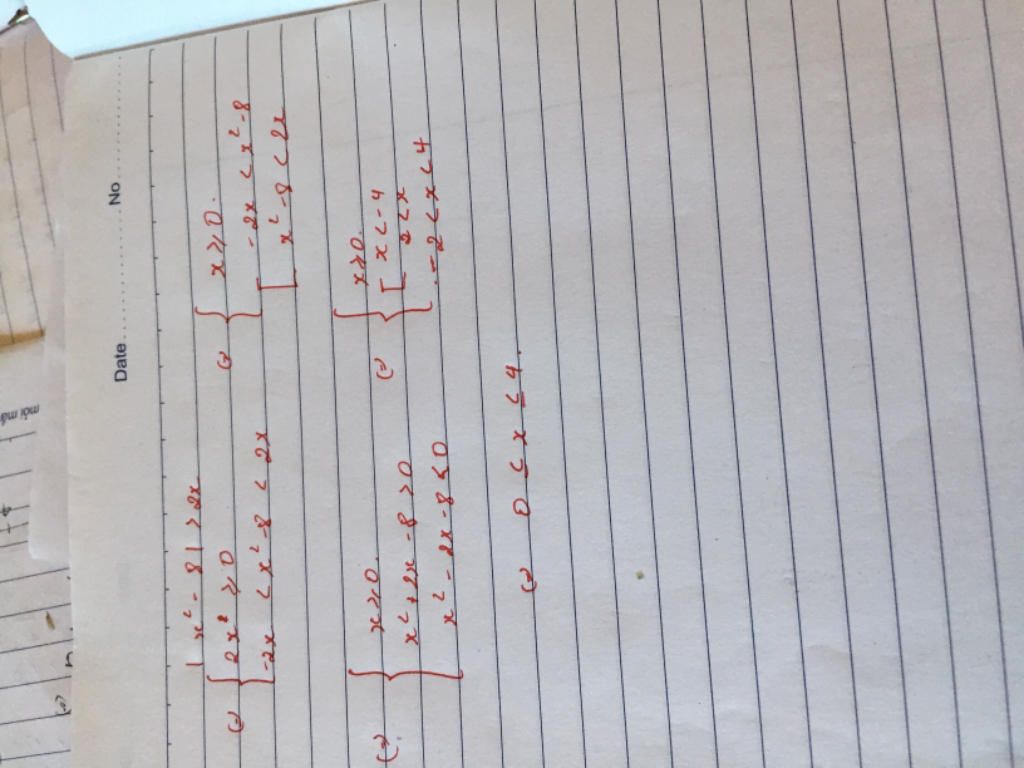 Date No
|x² - 8| > 2x
(=) { 2x ≥ 0
-2x < x² - 8 < 2x
(=) { x ≥ 0.
[ -2x < x² - 8
x² - 8 < 2x
(=) { x ≥ 0.
x² + 2x - 8 > 0
x² - 2x - 8 < 0
(=) { x ≥ 0.
[ x < -4
2 < x
-2 < x < 4
(=) 0 ≤ x ≤ 4.